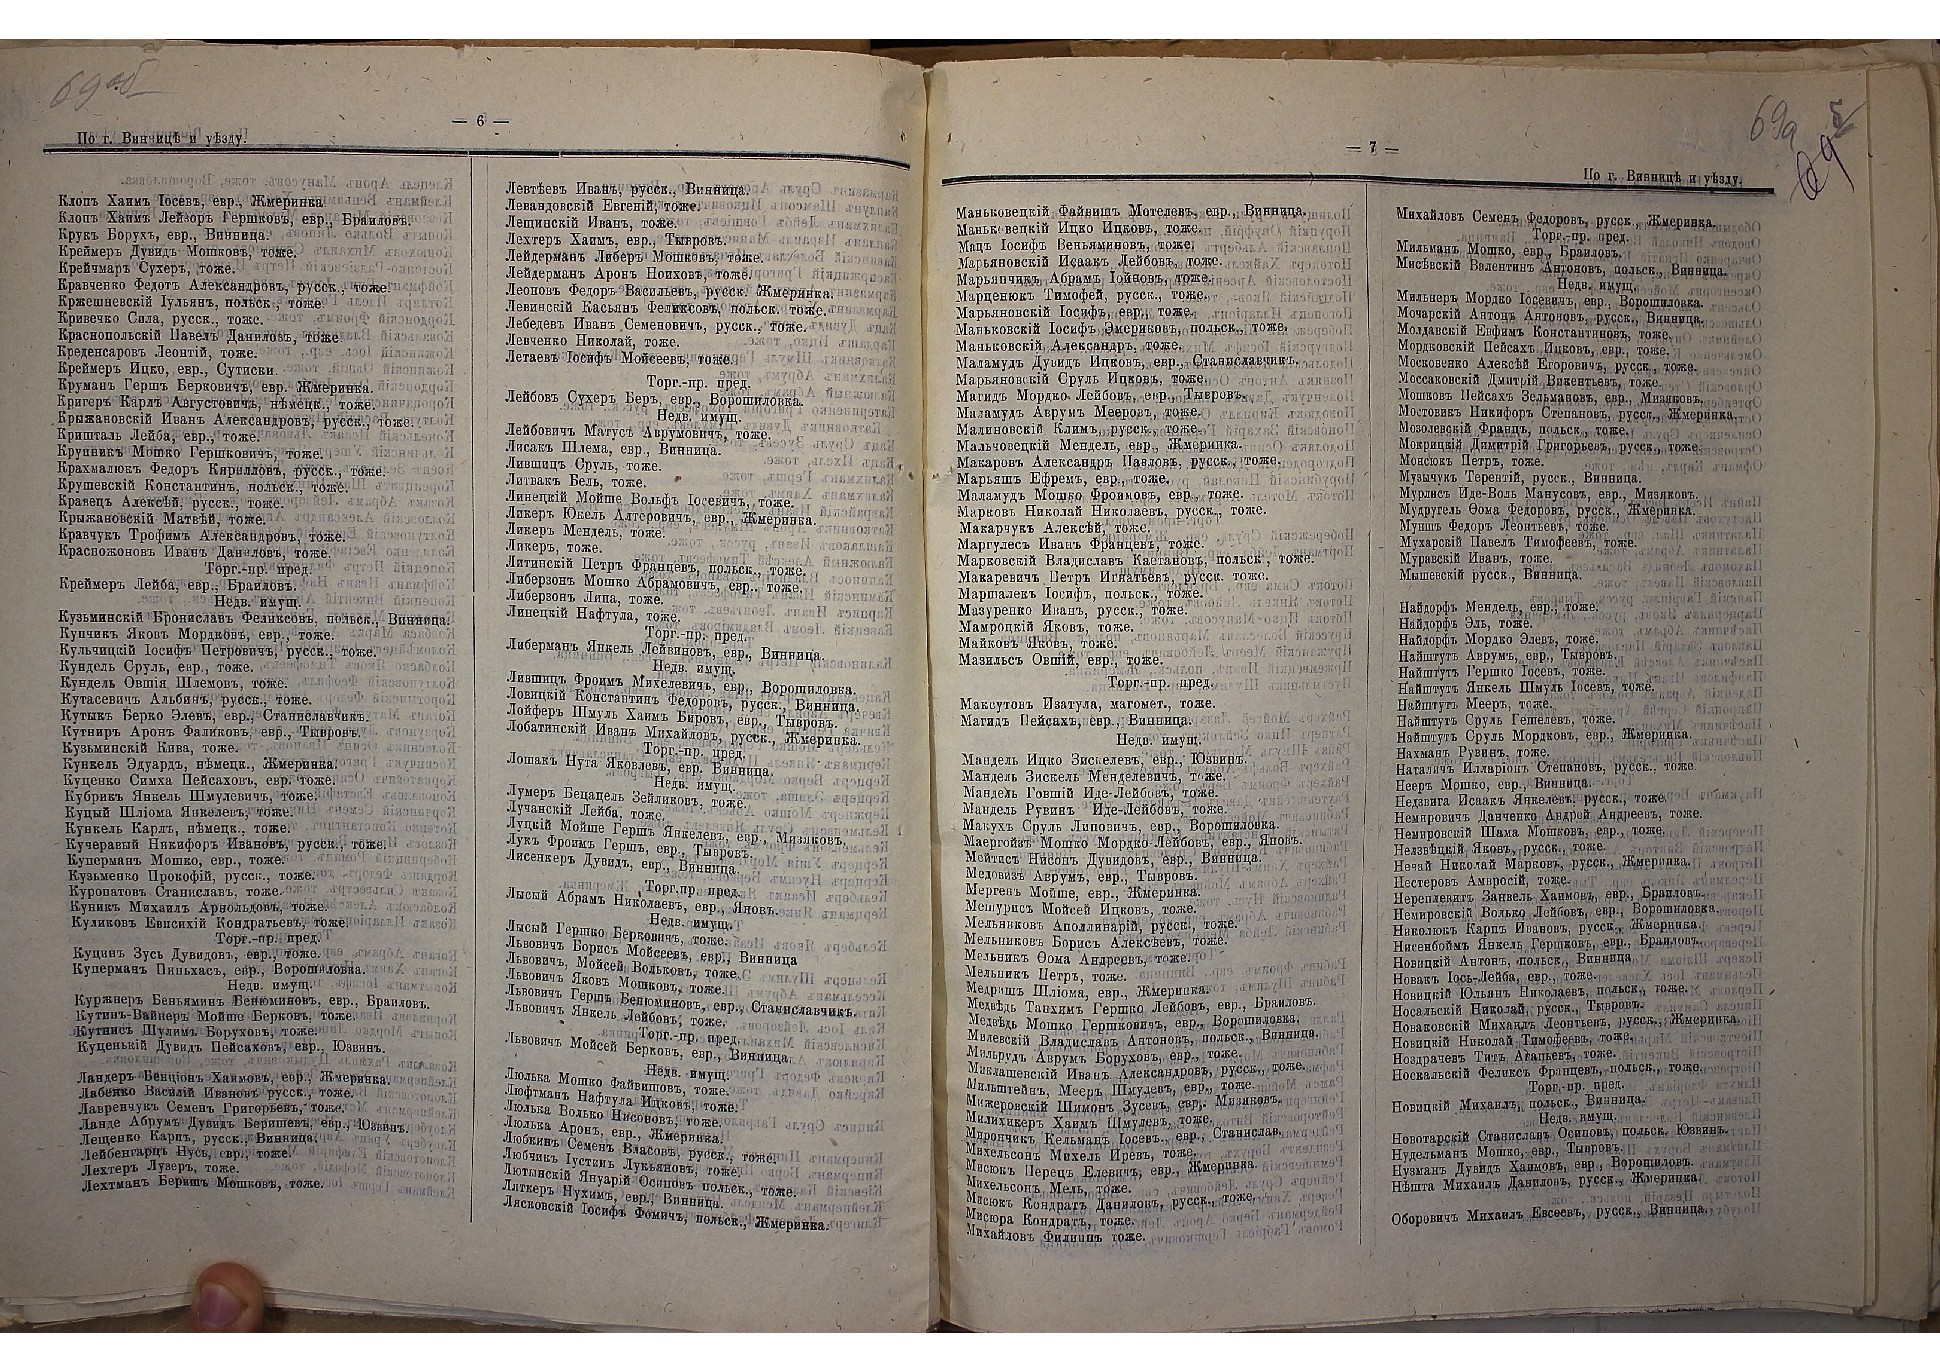 69 об
— 6 —
По г. Винницѣ и уѣзду.
Клопъ Хаимъ Іосевъ, евр., Жмеринка.
Клопъ Хаимъ Лейзоръ Гершковъ, евр., Браиловъ.
Крукъ Борухъ, евр., Винница.
Креймеръ Дувидъ Мошковъ, тоже.
Крейчмаръ Сухеръ, тоже.
Кравченко Федотъ Александровъ, русск., тоже.
Кржешневскій Іульянъ, польск., тоже.
Кривечко Сила, русск., тоже.
Краснопольскій Павелъ Даниловъ, тоже
Креденсаровъ Леонтій, тоже.
Креймеръ Ицко, евр., Сутиски.
Круманъ Гершъ Берковичъ, евр. Жмеринка.
Кригеръ Карлъ Августовичъ, нѣмецк., тоже.
Крыжановскій Иванъ Александровъ, русск., тоже.
Кришталь Лейба, евр., тоже.
Крупникъ Мошко Гершковичъ, тоже.
Крахмалюкъ Федоръ Кирилловъ, русск., тоже.
Крушевскій Константинъ, польск., тоже.
Кравецъ Алексѣй, русск., тоже.
Крыжановскій Матвѣй, тоже.
Кравчукъ Трофимъ Александровъ, тоже.
Красножоновъ Иванъ Даниловъ, тоже.
Торг.-пр. пред.
Креймеръ Лейба, евр., Браиловъ.
Недв. имущ.
Кузьминскій Брониславъ Феликсовъ, польск., Винница.
Купчикъ Яковъ Мордковъ, евр., тоже.
Кульчицкій Іосифъ Петровичъ, русск., тоже.
Кундель Сруль, евр., тоже.
Кундель Овшія Шлемовъ, тоже.
Кутасевичъ Альбинъ, русск., тоже.
Кутыкъ Берко Элевъ, евр., Станиславчикъ.
Кутниръ Аронъ Фаликовъ, евр., Тывровъ.
Кузьминскій Кива, тоже.
Кункель Эдуардъ, нѣмецк., Жмеринка.
Куценко Симха Пейсаховъ, евр., тоже.
Кубрикъ Янкель Шмулевичъ, тоже.
Куцый Шліома Янкелевъ, тоже.
Кункель Карлъ, нѣмецк., тоже.
Кучеравый Никифоръ Ивановъ, русск., тоже.
Куперманъ Мошко, евр., тоже.
Кузьменко Прокофій, русск., тоже.
Куропатовъ Станиславъ, тоже.
Куникъ Михаилъ Арнольдовъ, тоже.
Куликовъ Евпсихій Кондратьевъ, тоже.
Торг.-пр. пред.
Куцинъ Зусь Дувидовъ, евр., тоже.
Куперманъ Пиньхасъ, евр., Ворошиловка.
Недв. имущ.
Куржнеръ Беньяминъ Венюминовъ, евр., Браиловъ.
Кутинъ-Вайнеръ Мойше Берковъ, тоже.
Кутнисъ Шулимъ Боруховъ, тоже.
Куценькій Дувидъ Пейсаховъ, евр., Юзвинъ.
Ландеръ Бенціонъ Хаимовъ, евр., Жмеринка.
Лабенко Василій Ивановъ русск., тоже.
Лавренчукъ Семенъ Григорьевъ, тоже.
Ланде Абрумъ Дувидъ Беришевъ, евр., Юзвинъ.
Лещенко Карпъ, русск., Винница.
Лейбенгарцъ Нусь, евр., тоже.
Лехтеръ Лузеръ, тоже.
Лехтманъ Беришъ Мошковъ, тоже.
Левтѣевъ Иванъ, русск., Винница.
Левандовскій Евгеній, тоже.
Лещинскій Иванъ, тоже.
Лехтеръ Хаимъ, евр., Тывровъ.
Лейдерманъ Либеръ Мошковъ, тоже.
Лейдерманъ Аронъ Ноиховъ, тоже.
Леоновъ Федоръ Васильевъ, русск. Жмеринка.
Левинскій Касьянъ Феликсовъ, польск. тоже.
Лебедевъ Иванъ Семеновичъ, русск., тоже.
Левченко Николай, тоже.
Летаевъ Іосифъ Мойсеевъ, тоже.
Торг.-пр. пред.
Лейбовъ Сухеръ Беръ, евр., Ворошиловка.
Недв. имущ.
Лейбовичъ Матусъ Аврумовичъ, тоже.
Лисакъ Шлема, евр., Винница.
Лившицъ Сруль, тоже.
Литвакъ Бель, тоже.
Линецкій Мойше Вольфъ Іосевичъ, тоже.
Ликеръ Юкель Алтеровичъ, евр., Жмеринка.
Ликеръ Мендель, тоже.
Ликеръ, тоже.
Литинскій Петръ Францевъ, польск., тоже.
Либерзонъ Мошко Абрамовичъ, евр., тоже.
Либерзонъ Липа, тоже.
Линецкій Нафтула, тоже.
Торг.-пр. пред.
Либерманъ Янкель Лейвиновъ, евр., Винница.
Недв. имущ.
Лившицъ Фроимъ Михелевичъ, евр., Ворошиловка.
Ловицкій Константинъ Федоровъ, русск., Винница.
Лойферъ Шмуль Хаимъ Бировъ, евр., Тывровъ.
Лобатинскій Иванъ Михайловъ, русск., Жмеринка.
Торг.-пр. пред.
Лошакъ Нута Яковлевъ, евр. Винница.
Недв. имущ.
Лумеръ Бецацель Зейликовъ, тоже.
Лучанскій Лейба, тоже.
Луцкій Мойше Гершъ Янкелевъ, евр., Мизяковъ.
Лукъ Фроимъ Гершъ, евр., Тывровъ.
Лисенкеръ Дувидъ, евр., Винница.
Торг.пр. пред.
Лысый Абрамъ Николаевъ, евр., Яновъ.
Недв. имущ.
Лысый Гершко Берковичъ, тоже.
Львовичъ Борисъ Мойсеевъ, евр., Винница
Львовичъ, Мойсей Вольковъ, тоже.
Львовичъ Яковъ Мошковъ, тоже.
Львовичъ Гершъ Бенюминовъ, евр., Станиславчикъ.
Львовичъ Янкель Лейбовъ, тоже.
Торг.-пр. пред.
Львовичъ Мойсей Берковъ, евр., Винница.
Недв. имущ.
Люлька Мошко Файвишовъ, тоже.
Люфтманъ Нафтула Ицковъ, тоже.
Люлька Волько Нисоновъ, тоже.
Люлька Аронъ, евр., Жмеринка.
Любкинъ Семенъ Власовъ, русск., тоже.
Любчикъ Іустинъ Лукьяновъ, тоже.
Лютынскій Януарій Осиповъ польск., тоже.
Ляткеръ Нухимъ, евр., Винница.
Лясковскій Іосифъ Фомичъ, польск., Жмеринка.
69а
69
— 7 —
По г. Винницѣ и уѣзду.
Маньковецкій Файвишъ Мотелевъ, евр., Винница.
Маньковецкій Ицко Ицковъ, тоже.
Мацъ Іосифъ Веньяминовъ, тоже.
Марьяновскій Исаакъ Лейбовъ, тоже.
Марьянчикъ Абрамъ Іойновъ, тоже.
Марценюкъ Тимофей, русск., тоже.
Марьяновскій Іосифъ, евр., тоже.
Маньковскій Іосифъ Эмериковъ, польск., тоже.
Маньковскій Александръ, тоже.
Маламудъ Дувидъ Ицковъ, евр., Станиславчикъ.
Марьяновскій Сруль Ицковъ, тоже.
Магидъ Мордко Лейбовъ, евр., Тывровъ.
Маламудъ Аврумъ Мееровъ, тоже.
Малиновскій Климъ, русск., тоже.
Мальчовецкій Мендель, евр., Жмеринка.
Макаровъ Александръ Павловъ, русск., тоже.
Марьяшъ Ефремъ, евр., тоже.
Маламудъ Мошко Фроимовъ, евр., тоже.
Марковъ Николай Николаевъ, русск., тоже.
Макарчукъ Алексѣй, тоже.
Маргулесъ Иванъ Францевъ, тоже.
Марковскій Владиславъ Каетановъ, польск., тоже.
Макаревичъ Петръ Игнатьевъ, русск. тоже.
Маршалекъ Іосифъ, польск., тоже.
Мазуренко Иванъ, русск., тоже.
Мамроцкій Яковъ, тоже.
Майковъ Яковъ, тоже.
Мазильсъ Овшій, евр., тоже.
Торг.-пр. пред.
Максутовъ Изатула, магомет., тоже.
Магидъ Пейсахъ, евр., Винница.
Недв. имущ.
Мандель Ицко Зискелевъ, евр., Юзвинъ.
Мандель Зискель Менделевичъ, тоже.
Мандель Говшій Иде-Лейбовъ, тоже.
Мандель Рувинъ Иде-Лейбовъ, тоже.
Макухъ Сруль Липовичъ, евр., Ворошиловка.
Маергойзъ Мошко Мордко-Лейбовъ, евр., Яновъ.
Мейтисъ Нисонъ Дувидовъ, евр., Винница.
Медовазъ Аврумъ, евр., Тывровъ.
Мергенъ Мойше, евр., Жмеринка.
Мешурисъ Мойсей Ицковъ, тоже.
Мельниковъ Аполлинарій, русск., тоже.
Мельниковъ Борисъ Алексѣевъ, тоже.
Мельникъ Ѳома Андреевъ, тоже.
Мельникъ Петръ, тоже.
Медришъ Шліома, евр., Жмеринка.
Медвѣдь Танхимъ Гершко Лейбовъ, евр., Браиловъ.
Медвѣдь Мошко Гершковичъ, евр., Ворошиловка.
Милевскій Владиславъ Антоновъ, польск., Винница.
Мильрудъ Аврумъ Боруховъ, евр., тоже.
Миклашевскій Иванъ Александровъ, русск., тоже.
Мильштейнъ, Мееръ Шмулевъ, евр., тоже.
Мижеровскій Шимонъ Зусевъ, евр., Мизяковъ.
Милихикеръ Хаимъ Шмулевъ, тоже.
Мирончикъ Кельманъ Іосевъ., евр., Станислав.
Михельсонъ Михель Иревъ, тоже.
Мисюкъ Перецъ Елевичъ, евр., Жмеринка.
Михельсонъ Мель, тоже.
Мисюкъ Кондратъ Даниловъ, русск., тоже.
Мисюра Кондратъ, тоже.
Михайловъ Филиппъ тоже.
Михайловъ Семенъ Федоровъ, русск., Жмеринка.
Торг.-пр. пред.
Мильманъ Мошко, евр., Браиловъ.
Мисѣвскій Валентинъ Антоновъ, польск., Винница.
Недв. имущ.
Мильнеръ Мордко Іосевичъ, евр., Ворошиловка.
Мочарскій Антонъ Антоновъ, русск., Винница.
Молдавскій Евфимъ Константиновъ, тоже.
Мордковскій Пейсахъ Ицковъ, евр., тоже.
Московенко Алексѣй Егоровичъ, русск., тоже.
Моссаковскій Дмитрій Викентьевъ, тоже.
Мошковъ Пейсахъ Зельмановъ, евр., Мизяковъ.
Мостовикъ Никифоръ Степановъ, русск., Жмеринка.
Мозолевскій Францъ, польск., тоже.
Мокрицкій Димитрій Григорьевъ, русск., тоже.
Монсюкъ Петръ, тоже.
Музычукъ Терентій, русск., Винница.
Мурлисъ Иде-Воль Манусовъ, евр., Мизяковъ.
Мудругель Ѳома Федоровъ, русск., Жмеринка.
Мунштъ Федоръ Леонтьевъ, тоже.
Мухарскій Павелъ Тимофеевъ, тоже.
Муравскій Иванъ, тоже.
Мышевскій русск., Винница.
Найдорфъ Мендель, евр., тоже.
Найдорфъ Эль, тоже.
Найдорфъ Мордко Элевъ, тоже.
Найштутъ Аврумъ, евр., Тывровъ.
Найштутъ Гершко Іосевъ, тоже.
Найштутъ Янкель Шмуль Іосевъ, тоже.
Найштутъ Мееръ, тоже.
Найштутъ Сруль Гешелевъ, тоже.
Найштутъ Сруль Мордковъ, евр., Жмеринка.
Нахманъ Рувинъ, тоже.
Наталичъ Илларіонъ Степановъ, русск., тоже.
Нееръ Мошко, евр., Винница.
Недзвига Исаакъ Янкелевъ, русск., тоже.
Немировичъ Данченко Андрей Андреевъ, тоже.
Немировскій Шама Мошковъ, евр., тоже.
Нелзвѣцкій Яковъ, русск., тоже.
Нечай Николай Марковъ, русск., Жмеринка.
Нестеровъ Амвросій, тоже.
Нереплевитъ Занвель Хаимовъ, евр., Браиловъ.
Немировскій Волько Лейбовъ, евр., Ворошиловка.
Николюкъ Карпъ Ивановъ, русск., Жмеринка.
Нисенбоймъ Янкель Гершковъ, евр., Браиловъ.
Новицкій Антонъ, польск., Винница.
Новакъ Іось-Лейба, евр., тоже.
Новицкій Юльянъ Николаевъ, польск., тоже.
Носальскій Николай, русск., Тывровъ.
Новаковскій Михаилъ Леонтьевъ, русск., Жмеринка.
Новицкій Николай Тимофеевъ, тоже.
Ноздрачевъ Титъ Агапьевъ, тоже.
Носкальскій Феликсъ Францевъ, польск., тоже.
Торг.-пр. пред.
Новицкій Михаилъ, польск., Винница.
Недв. имущ.
Новотарскій Станиславъ Осиповъ, польск. Юзвинъ.
Нудельманъ Мошко, евр., Тывровъ.
Нузманъ Дувидъ Хаимовъ, евр., Ворошиловъ.
Нѣшта Михаилъ Даниловъ, русск., Жмеринка.
Оборовичъ Михаилъ Евсеевъ, русск., Винница.